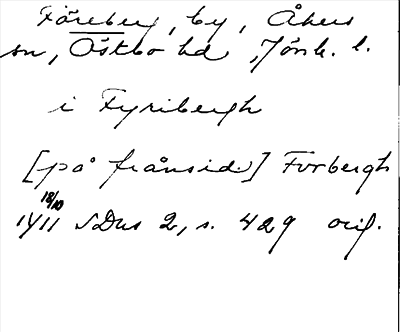 Fåreberg, by, Åkers
sn, Östbo hd, Jönk. l.
i Fyribergh
[på frånsid.] Forbergh
18/10 1411 SDns 2, s. 429 orig.